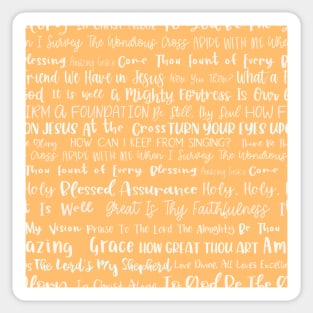 In Christ Alone To God Be The
n I Survey The Wondrous Cross ABIDE WITH ME Whe
Blessing Amazing Grace Come Thou Fount of Every B
Friend We Have in Jesus Were You There? What a F
God It is well A Mighty Fortress Is Our G
IRM A FOUNDATION Be Still, My Soul HOW F
ON JESUS At the Cross TURN YOUR EYES UPO
Glory HOW CAN I KEEP FROM SINGING? Thine Be Th
Cross ABIDE WITH ME When I Survey The Wondrous
Thou Fount of Every Blessing Amazing Grace Come
Holy Blessed Assurance Holy, Holy,
It Is Well Great Is Thy Faithfulness I
My Vision Praise To The Lord The Almighty Be Thou
azing Grace HOW GREAT THOU ART Am
s The Lord's My Shepherd Love Divine, All Loves Excelle
Glory In Christ Alone To God Be The